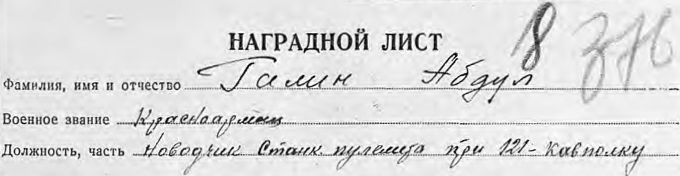 НАГРАДНОЙ ЛИСТ 8 376
Фамилия, имя и отчество Галин Абдул
Военное звание Красноармеец
Должность, часть Наводчик Станк. пулемета при 121-Кавполку